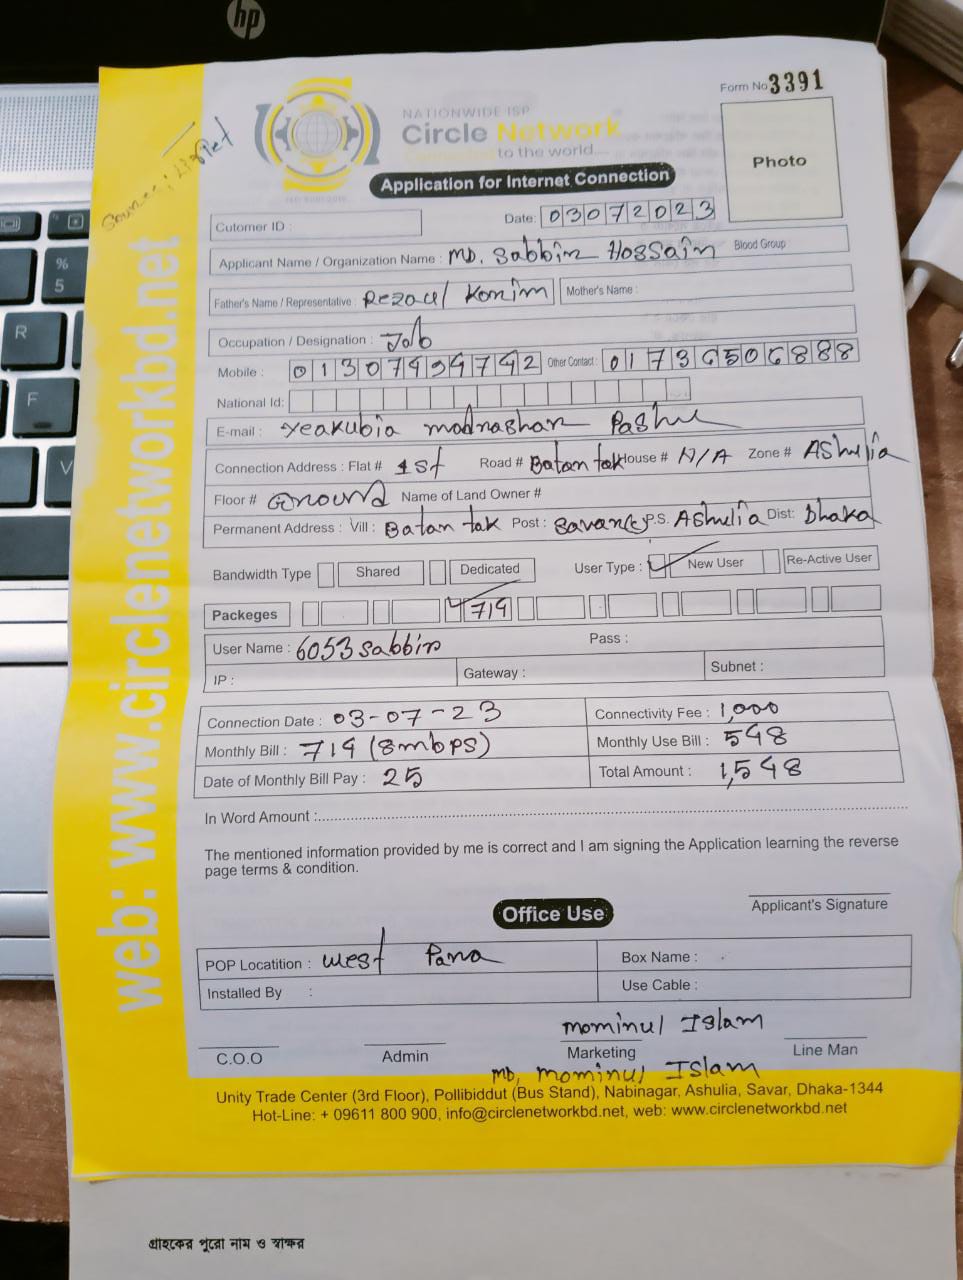 hp
Form No 3391
NATIONWIDE ISP
Circle Network
Connecting to the world....
Photo
Application for Internet Connection
Cutomer ID :
Date: 03072023
Applicant Name / Organization Name : MD. Sabbir Hossain Blood Group
Father's Name / Representative : Rezaul Korim Mother's Name :
Occupation / Designation : Job
Mobile : 01307494742 Other Contact : 01736506888
National Id:
E-mail : Yeakubia madrashar Pashe
Connection Address : Flat # 1st Road # Batan tak House # N/A Zone # Ashulia
Floor # Ground Name of Land Owner #
Permanent Address : Vill : Batan tak Post : Savar P.S. Ashulia Dist: Dhaka
Bandwidth Type Shared Dedicated User Type : New User Re-Active User
Packeges 714
User Name : 6053sabbir Pass :
IP : Gateway : Subnet :
Connection Date : 03-07-23 Connectivity Fee : 1,000
Monthly Bill : 714 (8mbps) Monthly Use Bill : 548
Date of Monthly Bill Pay : 25 Total Amount : 1,548
In Word Amount :
The mentioned information provided by me is correct and I am signing the Application learning the reverse
page terms & condition.
Applicant's Signature
Office Use
POP Locatition : West Para Box Name :
Installed By : Use Cable :
Mominul Islam
C.O.O Admin Marketing Line Man
MD. Mominul Islam
Unity Trade Center (3rd Floor), Pollibiddut (Bus Stand), Nabinagar, Ashulia, Savar, Dhaka-1344
Hot-Line: + 09611 800 900, info@circlenetworkbd.net, web: www.circlenetworkbd.net
web: www.circlenetworkbd.net
গ্রাহকের পুরো নাম ও স্বাক্ষর
% 5
R
F
V